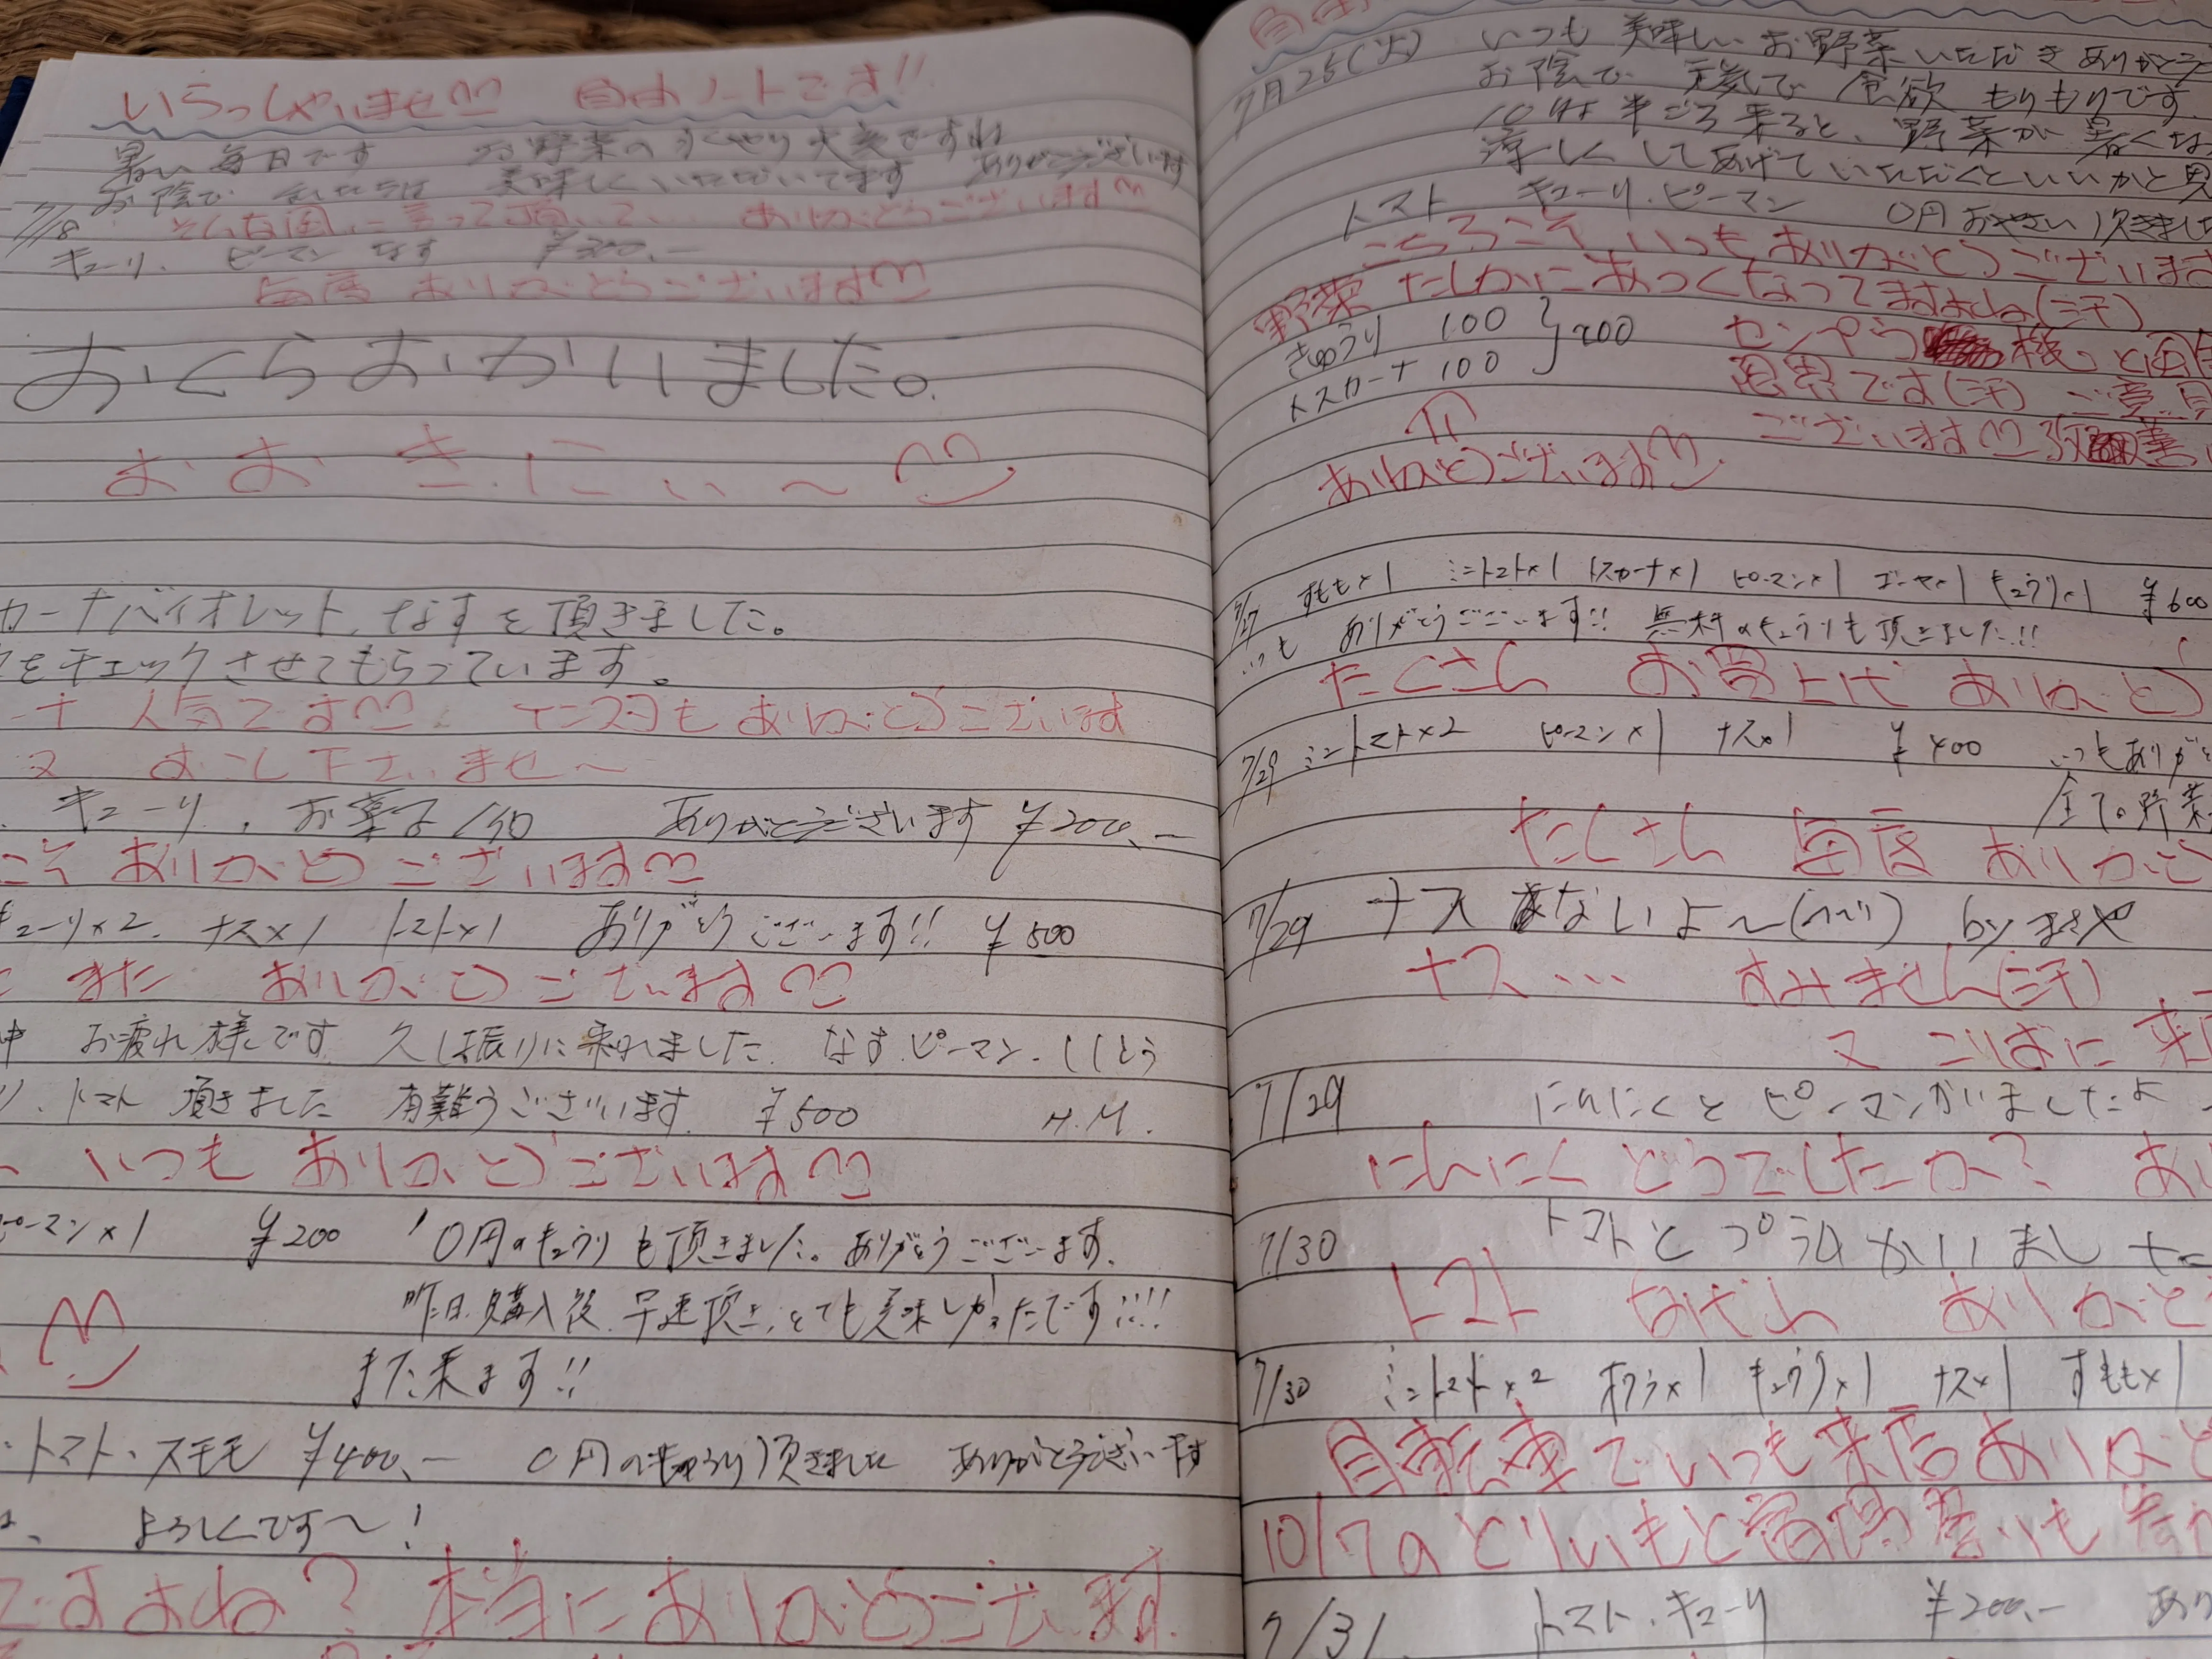 いらっしゃいませ 自由ノートです!!
暑い毎日です お野菜の 大変ですね
お陰で 美味しくいただいてます ありがとうございます
7/8 そんな風に言って頂いて… ありがとうございます
キューリ、ピーマン なす ¥300.-
毎度 ありがとうございます
おくらおかいました。
おおきにぃ〜
カーナバイオレット、なすを頂きました。
をチェックさせてもらっています。
ーナ 人気です インスタも ありがとうございます
又 おこし下さいませ〜
キューリ、お菓子 ありがとうございます ¥200.-
こそ ありがとうございます
キューリ×2、ナス×1 トマト×1 ありがとうございます!! ¥500
また ありがとうございます
中 お疲れ様です 久し振りに来れました なす、ピーマン、ししとう
り、トマト 頂きました 有難うございます ¥500 H.M.
いつも ありがとうございます
ピーマン×1 ¥200 0円のきゅうりも頂きました。ありがとうございます。
昨日購入後、早速頂き、とても美味しかったです!!!!
また来ます!!
・トマト・スモモ ¥400.- 0円のきゅうり頂きました ありがとうございます
よろしくです〜!
ですよね? 本当にありがとうございます
自由
7月25(火) いつも 美味しいお野菜いただき ありがとう
お陰で 元気で 食欲 もりもりです
10時半ごろ来ると、野菜が 暑くな
涼しくしてあげていただくといいかと思
トマト キューリ・ピーマン 0円おやさい頂きました
こちらこそ いつもありがとうございます
野菜 たしかにあつくなってますよね(汗)
きゅうり 100 }200 センプウ 機 と
トスカーナ 100 限界です(汗) ご意見
ございます 改善
ありがとうございます
7/27 すもも×1 ミニトマト×1 トスカーナ×1 ピーマン×1 ゴーヤ×1 きゅうり×1 ¥600
いつも ありがとうございます!! 無料のきゅうりも頂きました!!
たくさん お買上げ ありがとう
7/29 ミニトマト×2 ピーマン×1 ナス×1 ¥400 いつもありがと
全ての野菜
たくさん 毎度 ありがとう
7/29 ナス ないよ〜 by まさや
ナス… すみません(汗)
又 こりずに 来
7/29 にんにくとピーマンかいましたよ
にんにく どうでしたか? あり
7/30 トマトとプラムかいました
トマト プラム ありがと
7/30 ミニトマト×2 オクラ×1 きゅうり×1 ナス×1 すもも×1
自転車でいつも来店ありがと
10/7のとりいもと宿場
7/31 トマト・キューリ ¥200.- あり